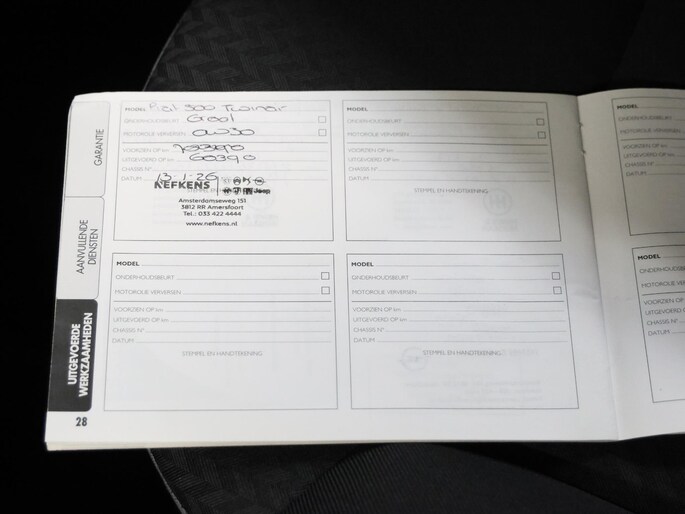 GARANTIE
AANVULLENDE DIENSTEN
UITGEVOERDE WERKZAAMHEDEN
28
MODEL Fiat 500 Twinair
ONDERHOUDSBEURT Groot
MOTOROLIE VERVERSEN 0W30
VOORZIEN OP km
UITGEVOERD OP km 60390
CHASSIS N°
DATUM 13-1-26
NEFKENS
Jeep
Amsterdamseweg 151
3812 RR Amersfoort
Tel.: 033 422 4444
www.nefkens.nl
MODEL
ONDERHOUDSBEURT
MOTOROLIE VERVERSEN
VOORZIEN OP km
UITGEVOERD OP km
CHASSIS N°
DATUM
STEMPEL EN HANDTEKENING
MODEL
ONDERHOUDSBEURT
MOTOROLIE VERVERSEN
VOORZIEN OP km
UITGEVOERD OP km
CHASSIS N°
DATUM
STEMPEL EN HANDTEKENING
MODEL
ONDERHOUDSBEURT
MOTOROLIE VERVERSEN
VOORZIEN OP km
UITGEVOERD OP km
CHASSIS N°
DATUM
STEMPEL EN HANDTEKENING
MODEL
ONDERHOUDSBEURT
MOTOROLIE VERVERSEN
VOORZIEN OP km
UITGEVOERD OP km
CHASSIS N°
DATUM
MODEL
ONDERHOUDSBE
MOTOROLIE VE
VOORZIEN OP k
UITGEVOERD O
CHASSIS N°
DATUM